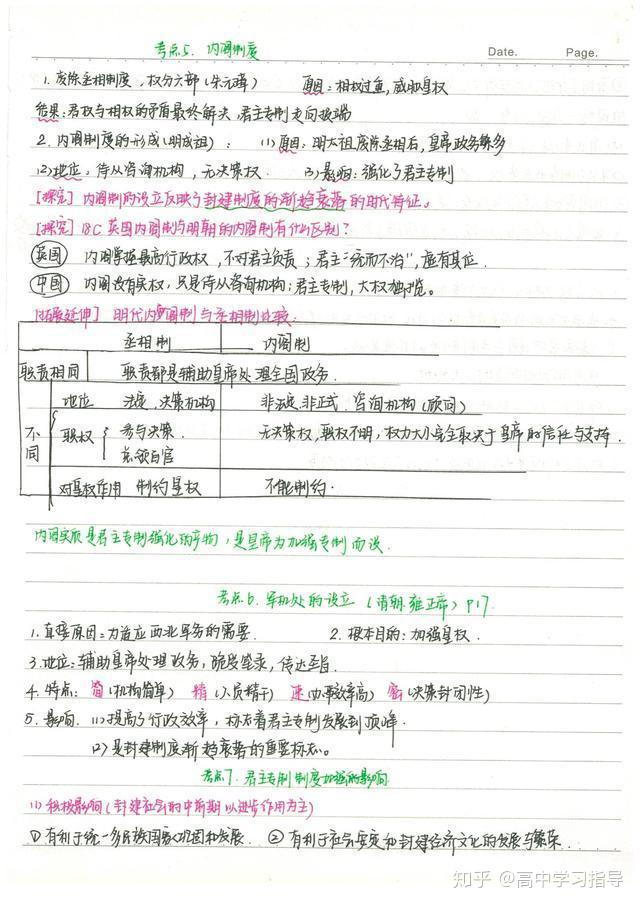 考点5. 内阁制度
Date. Page.
1. 废除丞相制度，权分六部(朱元璋) 原因：相权过重，威胁皇权
结果：君权与相权的矛盾最终解决，君主专制走向极端
2. 内阁制度的形成(明成祖)： (1)原因：明太祖废除丞相后，皇帝政务繁多
(2)地位：侍从咨询机构，无决策权. (3)影响：强化了君主专制
[探究] 内阁制的设立反映了封建制度的渐趋衰落的时代特征。
[探究] 18C英国内阁制与明朝的内阁制有什么区别？
英国 内阁掌握最高行政权，不对君主负责；君主"统而不治"，虚有其位.
中国 内阁没有实权，只是侍从咨询机构；君主专制，大权独揽。
[拓展延伸] 明代内阁制与丞相制比较：
丞相制 内阁制
职责相同 职责都是辅助皇帝处理全国政务.
不同 地位 法定，决策机构 非法定非正式.咨询机构(顾问)
职权 参与决策. 无决策权，职权不明，权力大小完全取决于皇帝的信任与支持.
总领百官
对皇权作用 制约皇权 不能制约.
内阁实质是君主专制强化的产物，是皇帝为加强专制而设.
考点6. 军机处的设立 (清朝.雍正帝) P17.
1. 直接原因：为适应西北军务的需要. 2. 根本目的：加强皇权.
3. 地位：辅助皇帝处理政务，跪受笔录，传达圣旨.
4. 特点：简(机构简单) 精(人员精干) 速(办事效率高) 密(决策封闭性)
5. 影响. (1)提高了行政效率，标志着君主专制发展到顶峰.
(2)是封建制度渐趋衰落的重要标志。
考点7. 君主专制制度加强的影响
(1)积极影响(封建社会的中前期以进步作用为主)
① 有利于统一多民族国家的巩固和发展. ② 有利于社会安定和封建经济文化的发展与繁荣.
知乎 @高中学习指导